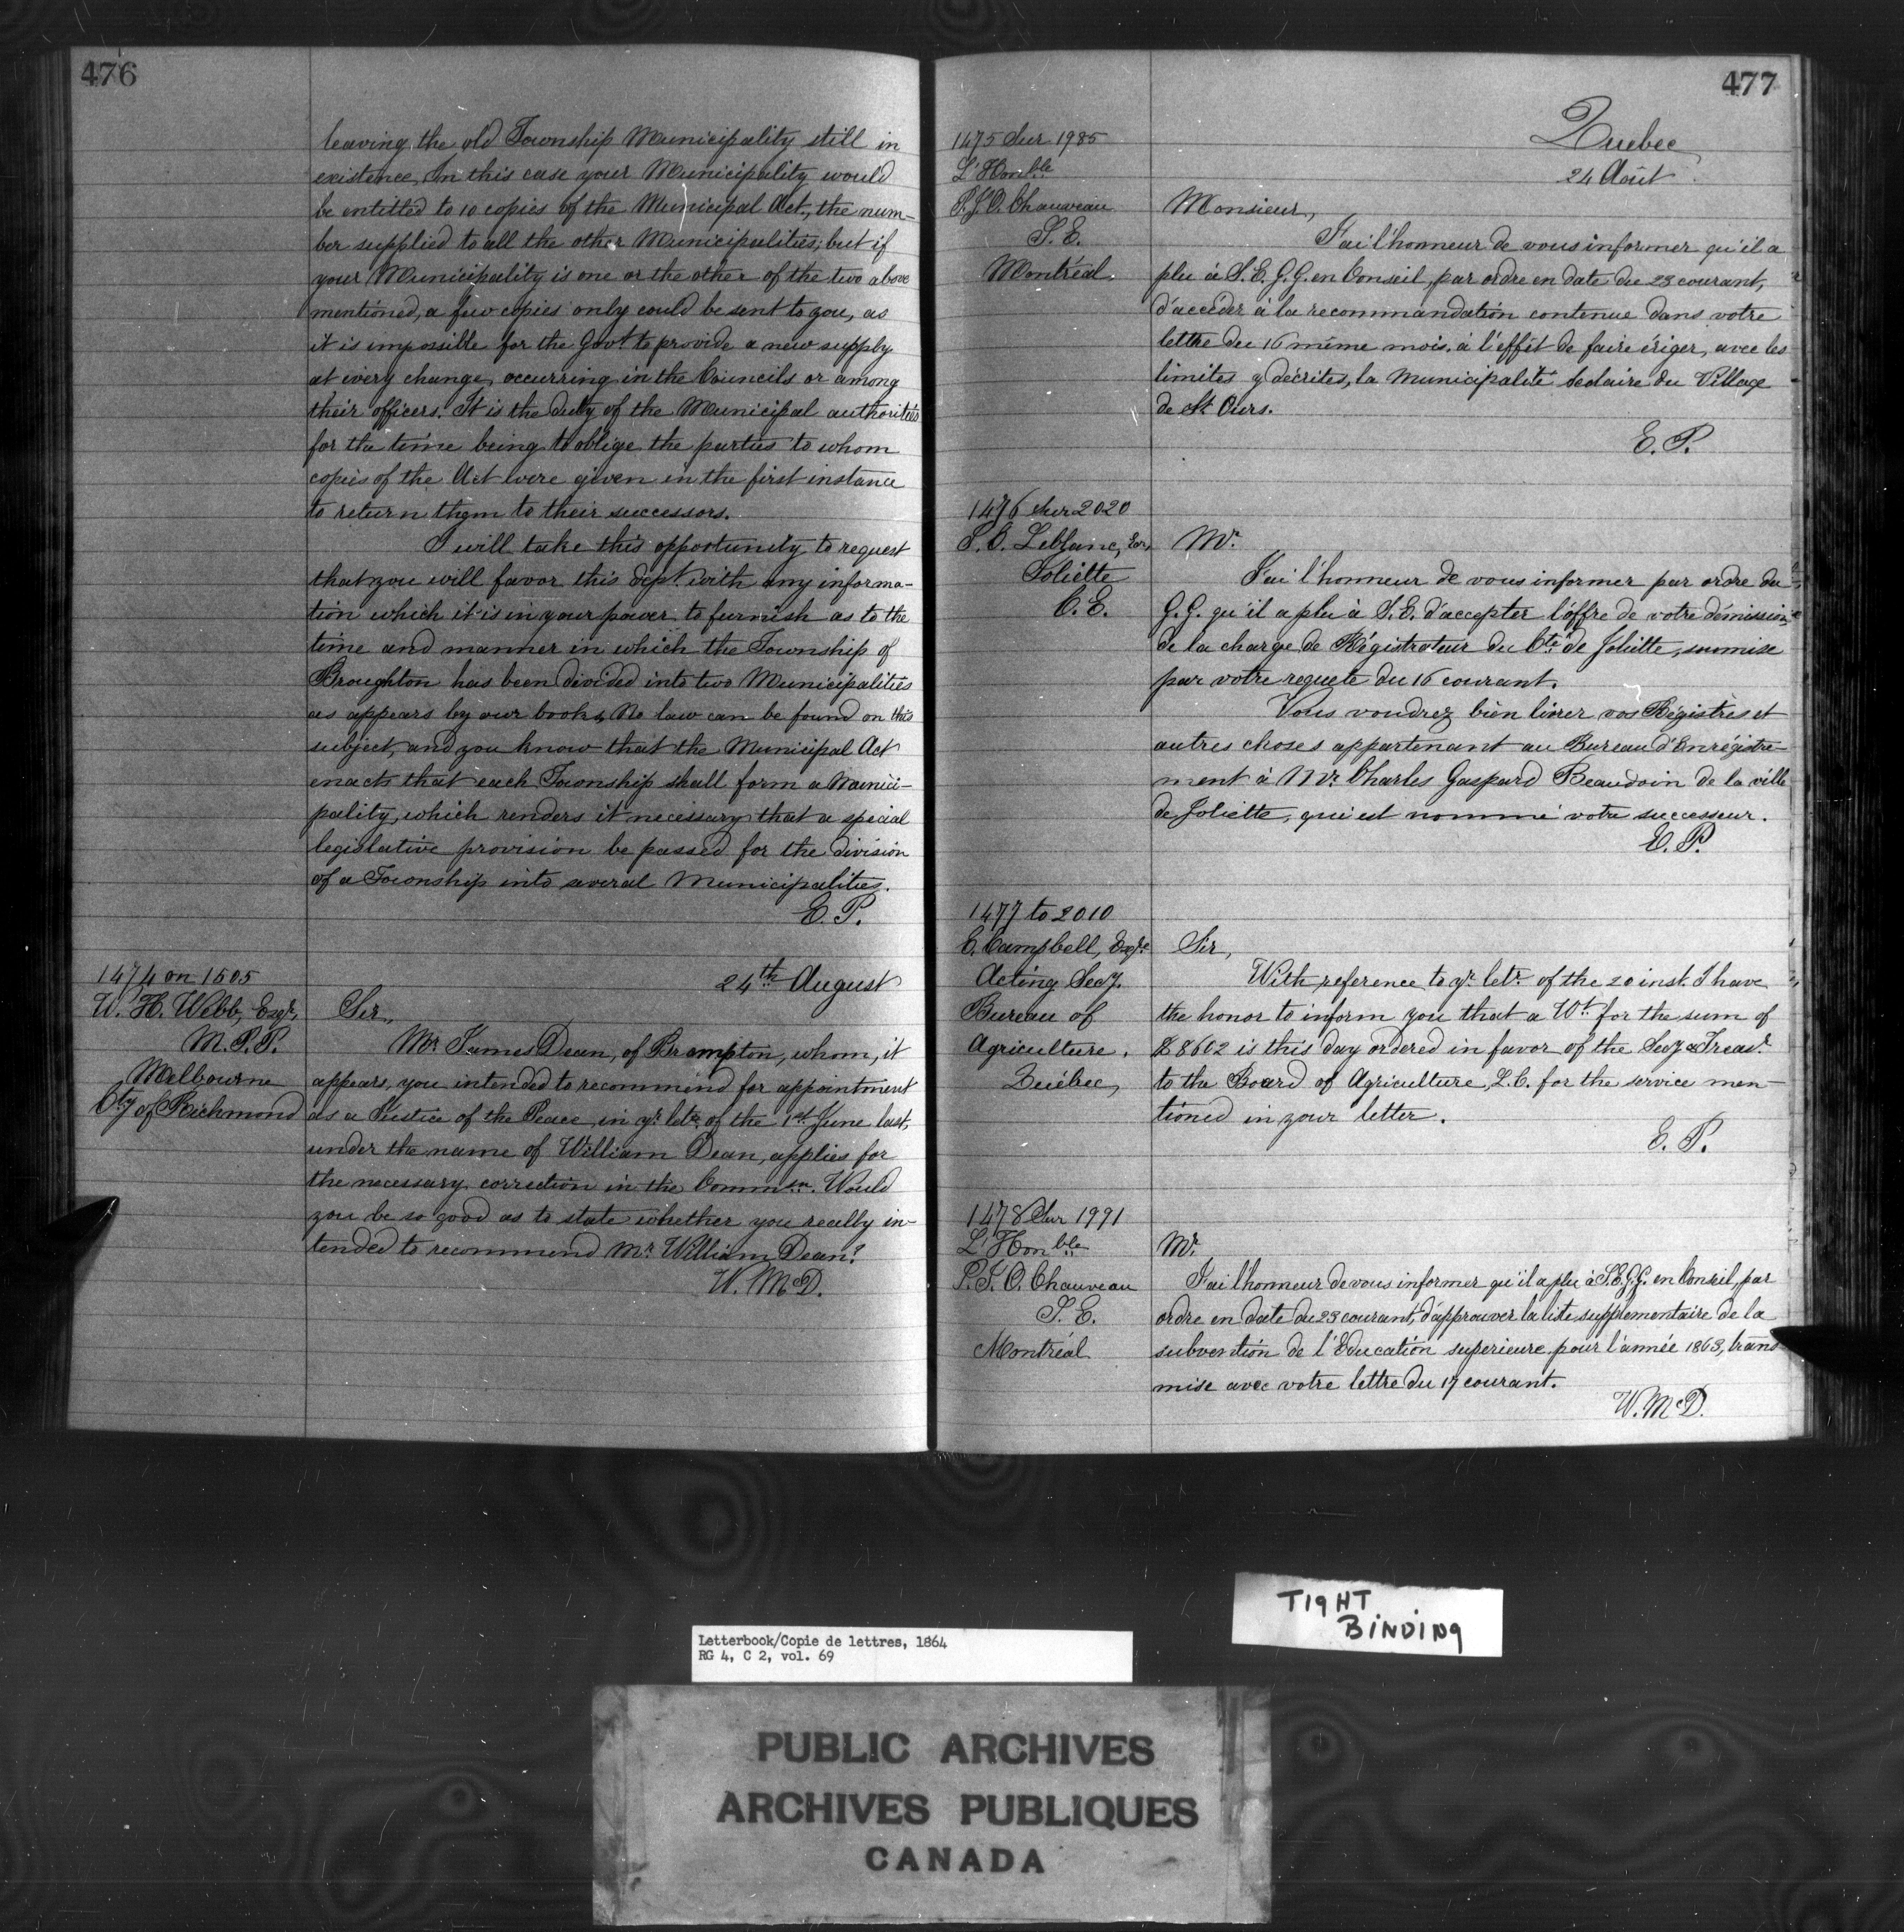 476
leaving the old Township Municipality still in
existence, In this case your Municipality would
be entitled to 10 copies of the Municipal Act, the num-
ber supplied to all the other Municipalities; but if
your Municipality is one or the other of the two above
mentioned, a few copies only could be sent to you, as
it is impossible for the Govt. to provide a new supply
at every change, occurring in the Councils or among
their officers. It is the duty of the Municipal authorities
for the time being to oblige the parties to whom
copies of the Act were given in the first instance
to return them to their successors.
I will take this opportunity to request
that you will favor this dept. with any informa-
tion which it is in your power to furnish as to the
time and manner in which the Township of
Broughton has been divided into two Municipalities
as appears by our books, No law can be found on this
subject, and you know that the Municipal Act
enacts that each Township shall form a Munici-
pality, which renders it necessary that a special
legislative provision be passed for the division
of a Township into several Municipalities.
E. P.
1474 on 1505
W. H. Webb, Esqr,
M. P. P.
Melbourne
Cty of Richmond
24th August
Sir,
Mr James Dean, of Brompton, whom, it
appears, you intended to recommend for appointment
as a Justice of the Peace, in yr letr. of the 1st June last,
under the name of William Dean, applies for
the necessary correction in the Commsn. Would
you be so good as to state whether you really in-
tended to recommend Mr. William Dean?
W. McD.
477
Quebec
24 Août
1475 Sur 1985
L'Honble
P. J. O. Chauveau
S. E.
Montréal.
Monsieur,
J'ai l'honneur de vous informer qu'il a
plu à S. E. G. G. en Conseil, par ordre en date du 23 courant,
d'accéder à la recommandation contenue dans votre
lettre du 16 même mois, à l'effet de faire ériger, avec les
limites y décrites, la Municipalité Scolaire du Village
de St Ours.
E. P.
1476 Sur 2020
L. O. Leblanc, Ecr,
Joliette
C. E.
Mr.
J'ai l'honneur de vous informer par ordre du
G. G. qu'il a plu à S. E. d'accepter l'offre de votre démission
de la charge de Régistrateur du Cté de Joliette, soumise
par votre requete du 16 courant.
Vous voudrez bien livrer vos Régistres et
autres choses appartenant au Bureau d'Enrégistre-
ment à Mr. Charles Gaspard Beaudoin de la ville
de Joliette, qui est nommé votre successeur.
E. P.
1477 to 2010
E. Campbell, Esqre
Acting Secy.
Bureau of
Agriculture.
Québec,
Sir,
With reference to yr letr. of the 20 inst. I have
the honor to inform you that a Wt. for the sum of
$8602 is this day ordered in favor of the Secy & Treasr.
to the Board of Agriculture, L. C. for the service men-
tioned in your letter.
E. P.
1478 Sur 1991
L'Honble
P. J. O. Chauveau
S. E.
Montréal
Mr.
J'ai l'honneur de vous informer qu'il a plu à S. E. G. G. en Conseil, par
ordre en date du 23 courant, d'approuver la liste supplementaire de la
subvention de l'Education superieure pour l'année 1863, trans-
mise avec votre lettre du 17 courant.
W. McD.
TIGHT
BINDING
Letterbook/Copie de lettres, 1864
RG 4, C 2, vol. 69
PUBLIC ARCHIVES
ARCHIVES PUBLIQUES
CANADA